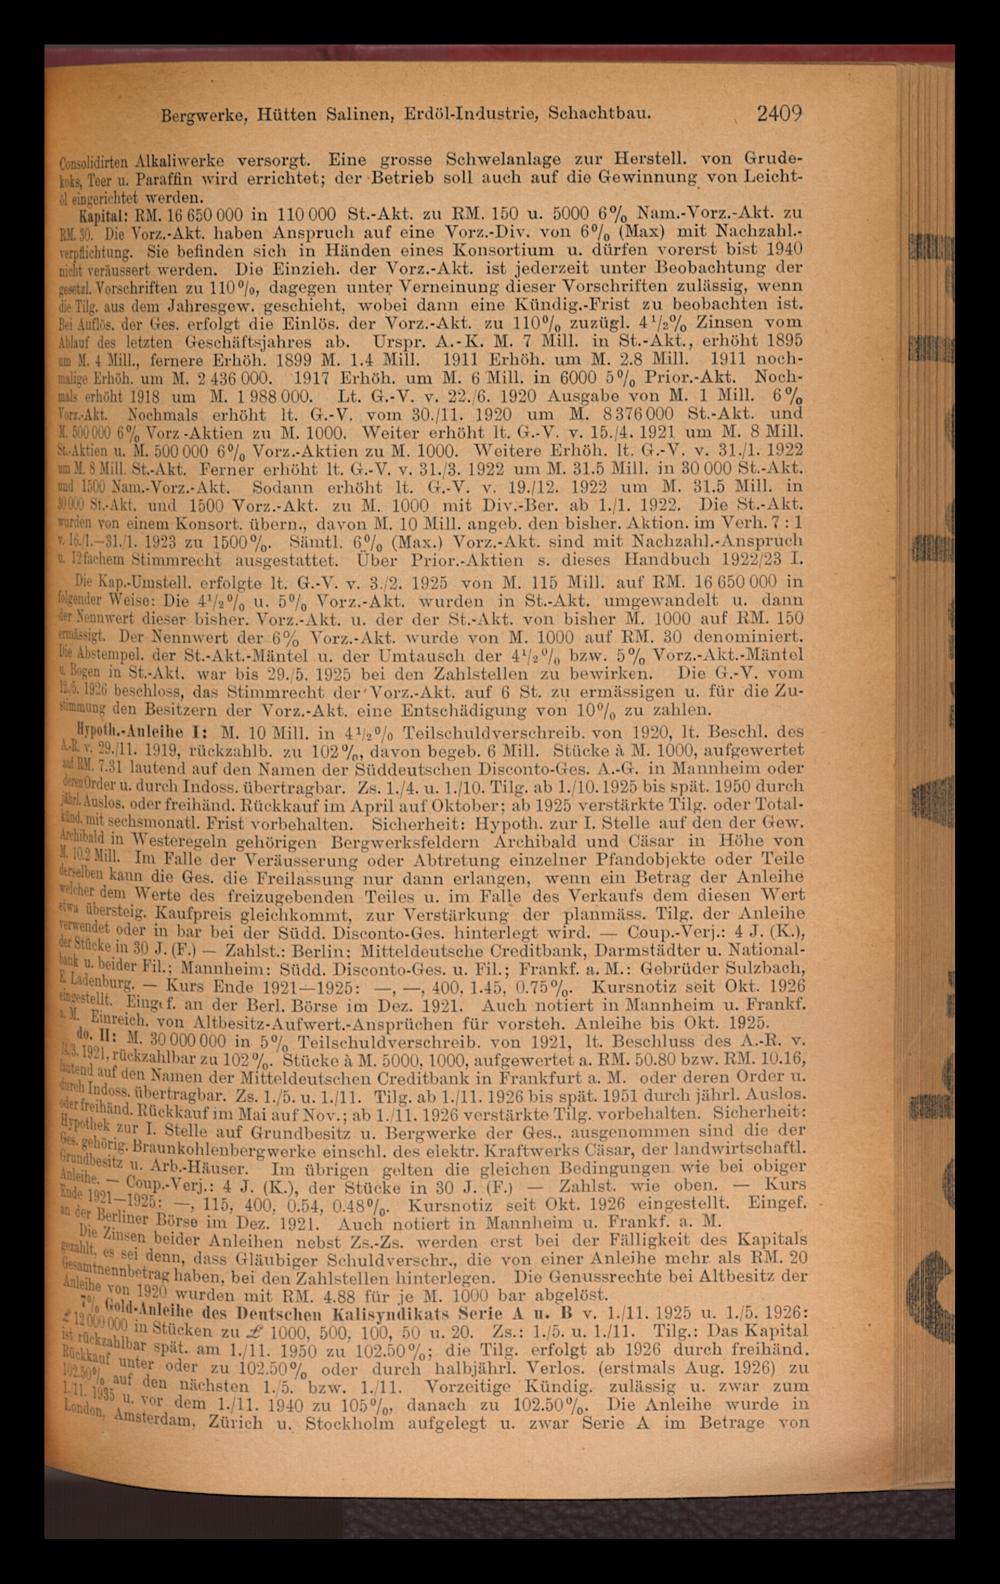 Bergwerke, Hütten Salinen, Erdöl-Industrie, Schachtbau. 2409
Consolidirten Alkaliwerke versorgt. Eine grosse Schwelanlage zur Herstell. von Grude-
koks, Teer u. Paraffin wird errichtet; der Betrieb soll auch auf die Gewinnung von Leicht-
öl eingerichtet werden.
Kapital: RM. 16 650 000 in 110 000 St.-Akt. zu RM. 150 u. 5000 6% Nam.-Vorz.-Akt. zu
RM. 30. Die Vorz.-Akt. haben Anspruch auf eine Vorz.-Div. von 6% (Max) mit Nachzahl.-
verpflichtung. Sie befinden sich in Händen eines Konsortium u. dürfen vorerst bist 1940
nicht veräussert werden. Die Einzieh. der Vorz.-Akt. ist jederzeit unter Beobachtung der
gesetzl. Vorschriften zu 110%, dagegen unter Verneinung dieser Vorschriften zulässig, wenn
die Tilg. aus dem Jahresgew. geschieht, wobei dann eine Kündig.-Frist zu beobachten ist.
Bei Auflös. der Ges. erfolgt die Einlös. der Vorz.-Akt. zu 110% zuzügl. 4½% Zinsen vom
Ablauf des letzten Geschäftsjahres ab. Urspr. A.-K. M. 7 Mill. in St.-Akt., erhöht 1895
um M. 4 Mill., fernere Erhöh. 1899 M. 1.4 Mill. 1911 Erhöh. um M. 2.8 Mill. 1911 noch-
malige Erhöh. um M. 2 436 000. 1917 Erhöh. um M. 6 Mill. in 6000 5% Prior.-Akt. Noch-
mals erhöht 1918 um M. 1 988 000. Lt. G.-V. v. 22./6. 1920 Ausgabe von M. 1 Mill. 6%
Vorz.-Akt. Nochmals erhöht lt. G.-V. vom 30./11. 1920 um M. 8 376 000 St.-Akt. und
M. 500 000 6% Vorz-Aktien zu M. 1000. Weiter erhöht lt. G.-V. v. 15./4. 1921 um M. 8 Mill.
St.-Aktien u. M. 500 000 6% Vorz.-Aktien zu M. 1000. Weitere Erhöh. lt. G.-V. v. 31./1. 1922
um M. 8 Mill. St.-Akt. Ferner erhöht lt. G.-V. v. 31./3. 1922 um M. 31.5 Mill. in 30 000 St.-Akt.
und 1500 Nam.-Vorz.-Akt. Sodann erhöht lt. G.-V. v. 19./12. 1922 um M. 31.5 Mill. in
30 000 St.-Akt. und 1500 Vorz.-Akt. zu M. 1000 mit Div.-Ber. ab 1./1. 1922. Die St.-Akt.
wurden von einem Konsort. übern., davon M. 10 Mill. angeb. den bisher. Aktion. im Verh. 7 : 1
v. 16./1.—31./1. 1923 zu 1500%. Sämtl. 6% (Max.) Vorz.-Akt. sind mit Nachzahl.-Anspruch
u. 12fachem Stimmrecht ausgestattet. Über Prior.-Aktien s. dieses Handbuch 1922/23 I.
Die Kap.-Umstell. erfolgte lt. G.-V. v. 3./2. 1925 von M. 115 Mill. auf RM. 16 650 000 in
folgender Weise: Die 4½% u. 5% Vorz.-Akt. wurden in St.-Akt. umgewandelt u. dann
der Nennwert dieser bisher. Vorz.-Akt. u. der der St.-Akt. von bisher M. 1000 auf RM. 150
ermässigt. Der Nennwert der 6% Vorz.-Akt. wurde von M. 1000 auf RM. 30 denominiert.
Die Abstempel. der St.-Akt.-Mäntel u. der Umtausch der 4½% bzw. 5% Vorz.-Akt.-Mäntel
u. Bogen in St.-Akt. war bis 29./5. 1925 bei den Zahlstellen zu bewirken. Die G.-V. vom
12./5. 1926 beschloss, das Stimmrecht der Vorz.-Akt. auf 6 St. zu ermässigen u. für die Zu-
stimmung den Besitzern der Vorz.-Akt. eine Entschädigung von 10% zu zahlen.
Hypoth.-Anleihe I: M. 10 Mill. in 4½% Teilschuldverschreib. von 1920, lt. Beschl. des
A.-R. v. 29./11. 1919, rückzahlb. zu 102%, davon begeb. 6 Mill. Stücke à M. 1000, aufgewertet
auf RM. 7.31 lautend auf den Namen der Süddeutschen Disconto-Ges. A.-G. in Mannheim oder
deren Order u. durch Indoss. übertragbar. Zs. 1./4. u. 1./10. Tilg. ab 1./10. 1925 bis spät. 1950 durch
jährl. Auslos. oder freihänd. Rückkauf im April auf Oktober; ab 1925 verstärkte Tilg. oder Total-
künd. mit sechsmonatl. Frist vorbehalten. Sicherheit: Hypoth. zur I. Stelle auf den der Gew.
Archibald in Westeregeln gehörigen Bergwerksfeldern Archibald und Cäsar in Höhe von
M. 10.2 Mill. Im Falle der Veräusserung oder Abtretung einzelner Pfandobjekte oder Teile
derselben kann die Ges. die Freilassung nur dann erlangen, wenn ein Betrag der Anleihe
welcher dem Werte des freizugebenden Teiles u. im Falle des Verkaufs dem diesen Wert
etwa übersteig. Kaufpreis gleichkommt, zur Verstärkung der planmäss. Tilg. der Anleihe
verwendet oder in bar bei der Südd. Disconto-Ges. hinterlegt wird. — Coup.-Verj.: 4 J. (K.),
der Stücke in 30 J. (F.) — Zahlst.: Berlin: Mitteldeutsche Creditbank, Darmstädter u. National-
bank u. beider Fil.; Mannheim: Südd. Disconto-Ges. u. Fil.; Frankf. a. M.: Gebrüder Sulzbach,
E. Ladenburg. — Kurs Ende 1921—1925: —, —, 400, 1.45, 0.75%. Kursnotiz seit Okt. 1926
eingestellt. Eingef. an der Berl. Börse im Dez. 1921. Auch notiert in Mannheim u. Frankf.
a. M. Einreich. von Altbesitz-Aufwert.-Ansprüchen für vorsteh. Anleihe bis Okt. 1925.
do. II: M. 30 000 000 in 5% Teilschuldverschreib. von 1921, lt. Beschluss des A.-R. v.
1921, rückzahlbar zu 102%. Stücke à M. 5000, 1000, aufgewertet a. RM. 50.80 bzw. RM. 10.16,
lautend auf den Namen der Mitteldeutschen Creditbank in Frankfurt a. M. oder deren Order u.
durch Indoss. übertragbar. Zs. 1./5. u. 1./11. Tilg. ab 1./11. 1926 bis spät. 1951 durch jährl. Auslos.
oder freihänd. Rückkauf im Mai auf Nov.; ab 1./11. 1926 verstärkte Tilg. vorbehalten. Sicherheit:
Hypothek zur I. Stelle auf Grundbesitz u. Bergwerke der Ges., ausgenommen sind die der
Ges. gehörig. Braunkohlenbergwerke einschl. des elektr. Kraftwerks Cäsar, der landwirtschaftl.
Grundbesitz u. Arb.-Häuser. Im übrigen gelten die gleichen Bedingungen wie bei obiger
Anleihe. — Coup.-Verj.: 4 J. (K.), der Stücke in 30 J. (F.) — Zahlst. wie oben. — Kurs
Ende 1921—1925: —, 115, 400, 0.54, 0.48%. Kursnotiz seit Okt. 1926 eingestellt. Eingef.
an der Berliner Börse im Dez. 1921. Auch notiert in Mannheim u. Frankf. a. M.
Die Zinsen beider Anleihen nebst Zs.-Zs. werden erst bei der Fälligkeit des Kapitals
gezahlt, es sei denn, dass Gläubiger Schuldverschr., die von einer Anleihe mehr als RM. 20
Gesamtnennbetrag haben, bei den Zahlstellen hinterlegen. Die Genussrechte bei Altbesitz der
Anleihe von 1920 wurden mit RM. 4.88 für je M. 1000 bar abgelöst.
7% Gold-Anleihe des Deutschen Kalisyndikats Serie A u. B v. 1./11. 1925 u. 1./5. 1926:
£ 12 000 000 in Stücken zu £ 1000, 500, 100, 50 u. 20. Zs.: 1./5. u. 1./11. Tilg.: Das Kapital
ist rückzahlbar spät. am 1./11. 1950 zu 102.50%; die Tilg. erfolgt ab 1926 durch freihänd.
Rückkauf unter oder zu 102.50% oder durch halbjährl. Verlos. (erstmals Aug. 1926) zu
102.50% auf den nächsten 1./5. bzw. 1./11. Vorzeitige Kündig. zulässig u. zwar zum
1./11. 1935 u. vor dem 1./11. 1940 zu 105%, danach zu 102.50%. Die Anleihe wurde in
London, Amsterdam, Zürich u. Stockholm aufgelegt u. zwar Serie A im Betrage von